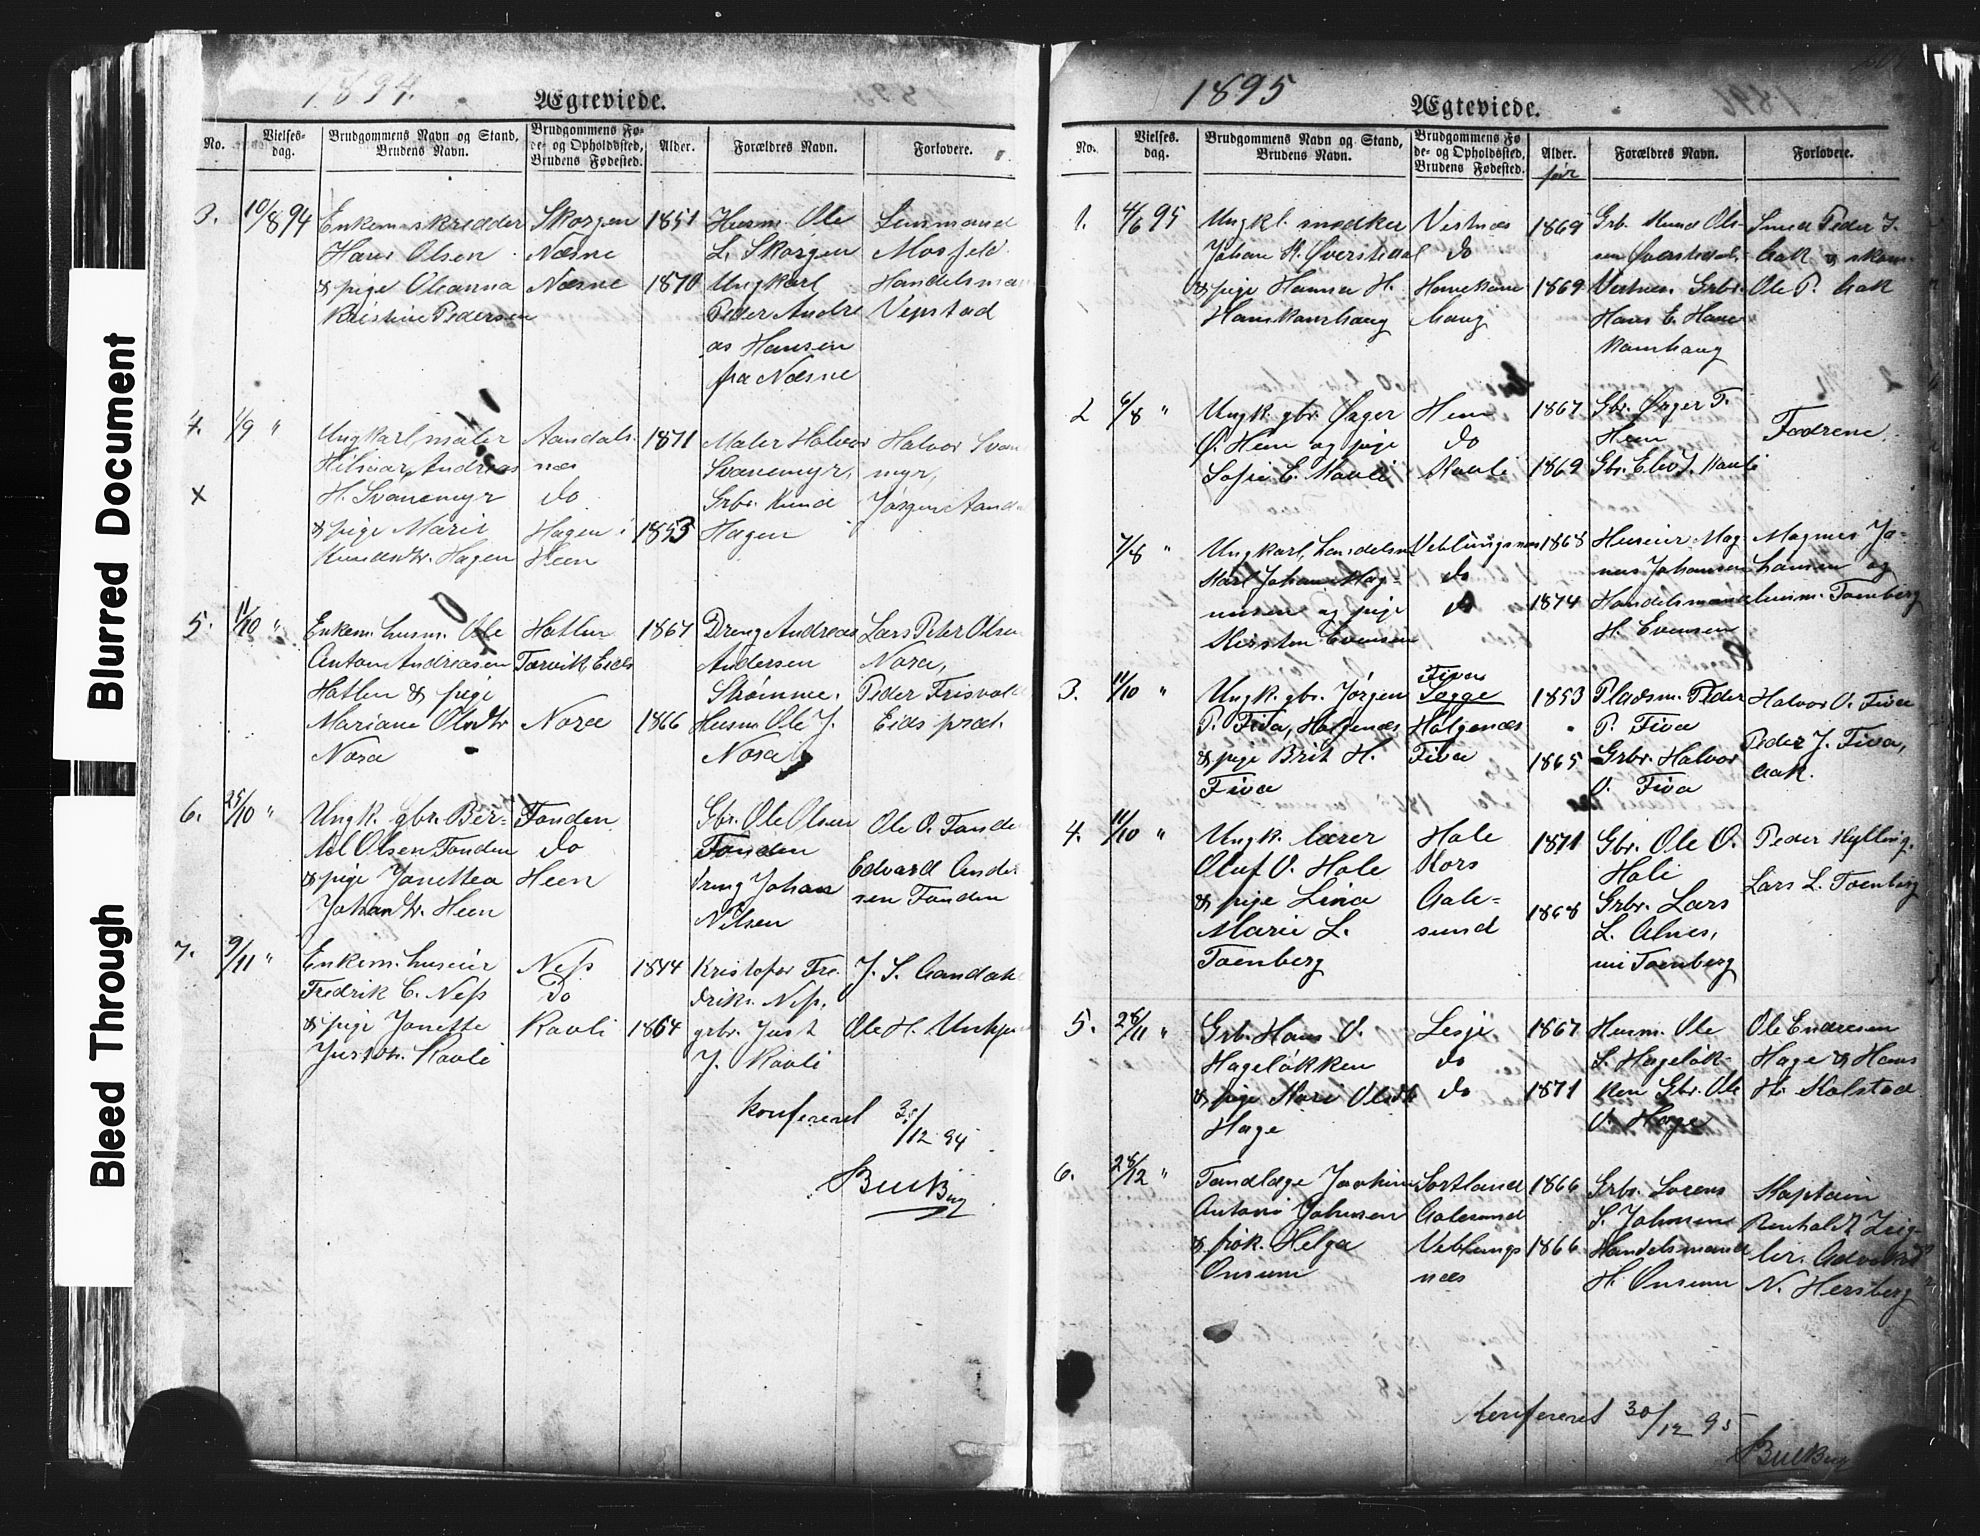 Blurred Document
Bleed Through
1894.
Ægteviede.
No.
Vielses-
dag.
Brudgommens Navn og Stand,
Brudens Navn.
Brudgommens Fø-
de- og Opholdssted,
Brudens Fødested.
Alder.
Forældres Navn.
Forlovere.
3. 10/8 94
Enkem. skrædder
Hans Olsen
& pige Oleanna
Kristine Pedersen
Skorgen
Næsne
Næsne
1851
1870
Husm. Ole
L. Skorgen
Ungkarl
Peder Andre
as Hansen
fra Næsne
Linsmand
Mosfeld
Handelsma
Vepstad
4. 1/9 "
X
Ungkarl maler
Hilmar Andreas
H. Svanemyr
& pige Marit
Knudsdtr. Hagen
Aandals
næs
do
Hagen i
Heen
1871
1853
Maler Halvor
Svanemyr,
Grbr. Knud
Hagen
Halvor Svan
myr,
Jørgen Aand
5. 11/10 "
Enkem. husm. Ole
Anton Andreasen
Hatlen & pige
Mariane Olsdtr
Nora
Hatlen
Torvik Eids
Nora
1867
1866
Dreng Andreas
Andersen
Strømme.
Husm Ole J.
Nora
Lars Peter Olsen
Nora,
Peder Frisvold
Eids præt.
6. 25/10 "
Ungk. gbr. Ber-
tel Olsen Fonden
& pige Jonettea
Johan tr. Heen
Fonden
do
Heen
Gbr. Ole Olsen
Fonden
Dreng Johan
Nilsen
Ole O. Fonde
Edvard Ander
sen Fonden
7. 9/11 "
Enkem. husier
Fredrik C. Ness
& pige Jonette
Justdtr. Kavli
Ness
Do
Kavli
1844
1864
Kristofer Fre
driks. Ness.
grbr. Just
J. Kavli
J. S. Aandah
Ole H. Unhje
Konfereret 30/12 94
Bull
1895
Ægteviede.
No.
Vielses.
dag.
Brudgommens Navn og Stand,
Brudens Navn.
Brudgommens Fø
de- og Opholdssted,
Brudens Fødested.
Alder.
før
Forældres Navn.
Forlovere.
1. 4/6 95
Ungkl. snedker
Johan K. Øverstedal
& pige Hanna H.
Hanekamhaug
Vestnæs
do
Hanekam
haug
1869
1869
Grb. Knud Ol-
sen Øverstedal,
Vestnes. Grbr.
Hans E. Hane
kamhaug
Smed Peder J.
Aak & skom.
Ole P. Aak
2 6/8 "
Ungk. gbr. Ørger
Ø. Hem og pige
Sofie E. Kavli
Hem
do
Kavli
1867
1869
Gbr. Ørger T.
Hem
Gbr. Eliv J. Kavli
Fædrene.
7/8 "
Ungkarl, handelsm
Karl Johan Mag-
nusen og pige
Kirsten Evensen
Veblungsnæs
do
do
1868
1874
Husier Mag
nus Johansen
Handelsmand
H. Evensen
Magnus Jo-
hansen og
husm. Tomberg
3. 11/10 "
Ungk. gbr. Jørgen
P. Fiva, Holgenæs
& pige Brit H.
Fiva
Fiva
Togge
Holgenæs
Fiva
1853
1865
Pladsm. Peder
P. Fiva
Grbr. Halvor
O. Fiva
Halvor O. Fiva
Peder J. Fiva,
Aak.
4. 11/10 "
Ungk. lærer
Oluf O. Hole
& pige Lina
Marie L.
Tomberg
Hole
Kors
Aale-
sund
1871
1868
Gbr. Ole O.
Hole
Grbr. Lars
L. Alnes,
nu Tomberg
Peder Kylling.
Lars L. Tomberg
5. 28/11 "
Grb. Hans O.
Hageløkken
& pige Kari Olsdtr
Hage
Lesje
do
do
1867
1871
Husm. Ole
S. Hageløk-
ken Gbr. Ole
O. Hage
Ole Endresen
Hage & Hans
H. Kolstad
6. 28/12 "
Tandlæge Joakim
Antoni Johnsen
& frøk. Helga
Onsum
Sortland
Aalesund
Veblungs
næs
1866
1866
Grbr. Lorens
S. Johnsen
Handelsmand
H. Onsum
Kaptain
Renholdt Zeig-
ler. Advokat
N. Hersberg
Konfereret 30/12 95
Bull